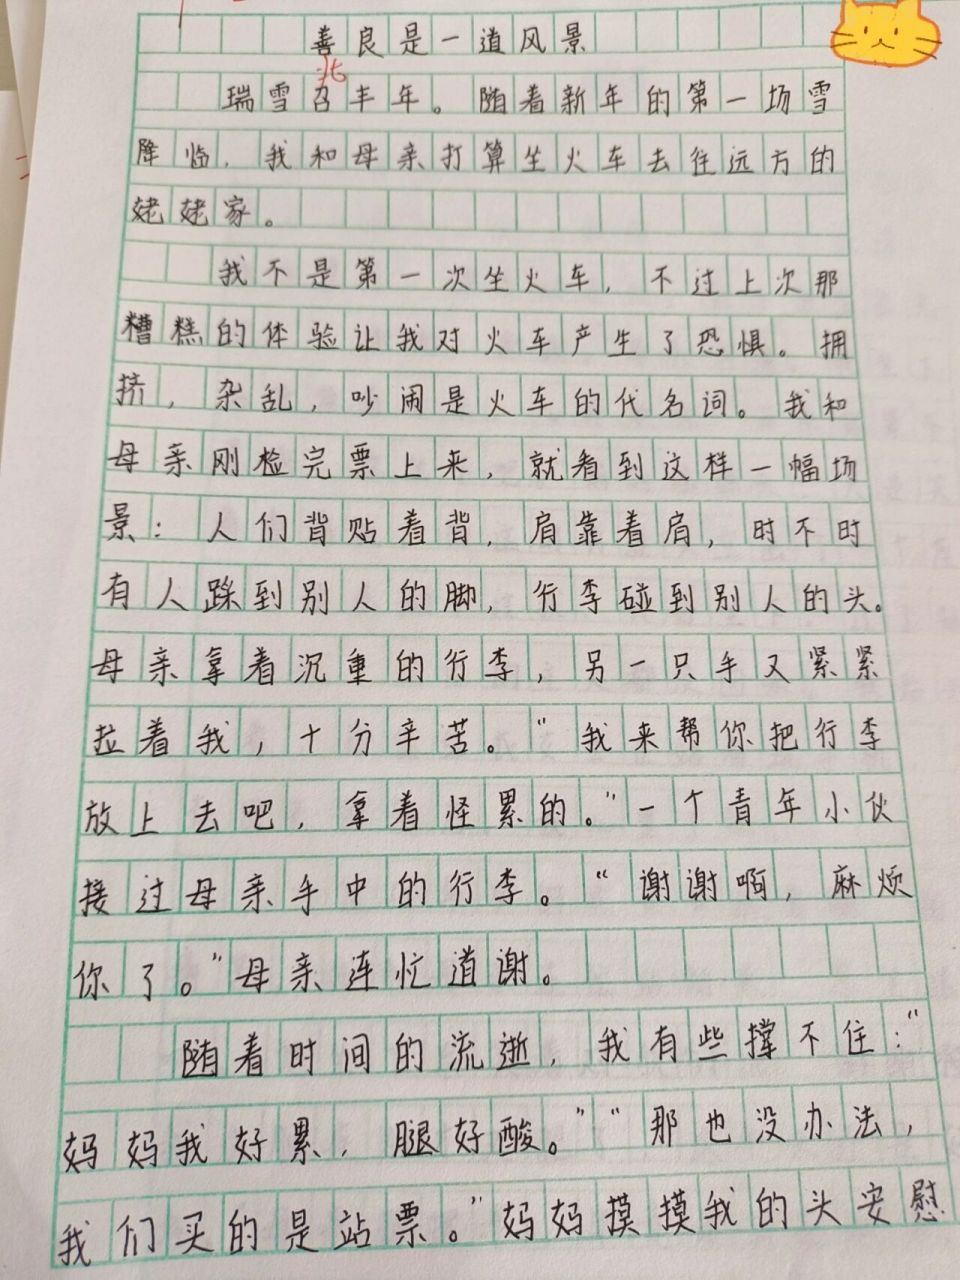 善良是一道风景
兆
瑞雪召丰年。随着新年的第一场雪
降临，我和母亲打算坐火车去往远方的
姥姥家。
我不是第一次坐火车，不过上次那
糟糕的体验让我对火车产生了恐惧。拥
挤，杂乱，吵闹是火车的代名词。我和
母亲刚检完票上来，就看到这样一幅场
景：人们背贴着背，肩靠着肩，时不时
有人踩到别人的脚，行李碰到别人的头。
母亲拿着沉重的行李，另一只手又紧紧
拉着我，十分辛苦。“我来帮你把行李
放上去吧，拿着怪累的。”一个青年小伙
接过母亲手中的行李。“谢谢啊，麻烦
你了。”母亲连忙道谢。
随着时间的流逝，我有些撑不住：“
妈妈我好累，腿好酸。”“那也没办法，
我们买的是站票。”妈妈摸摸我的头安慰